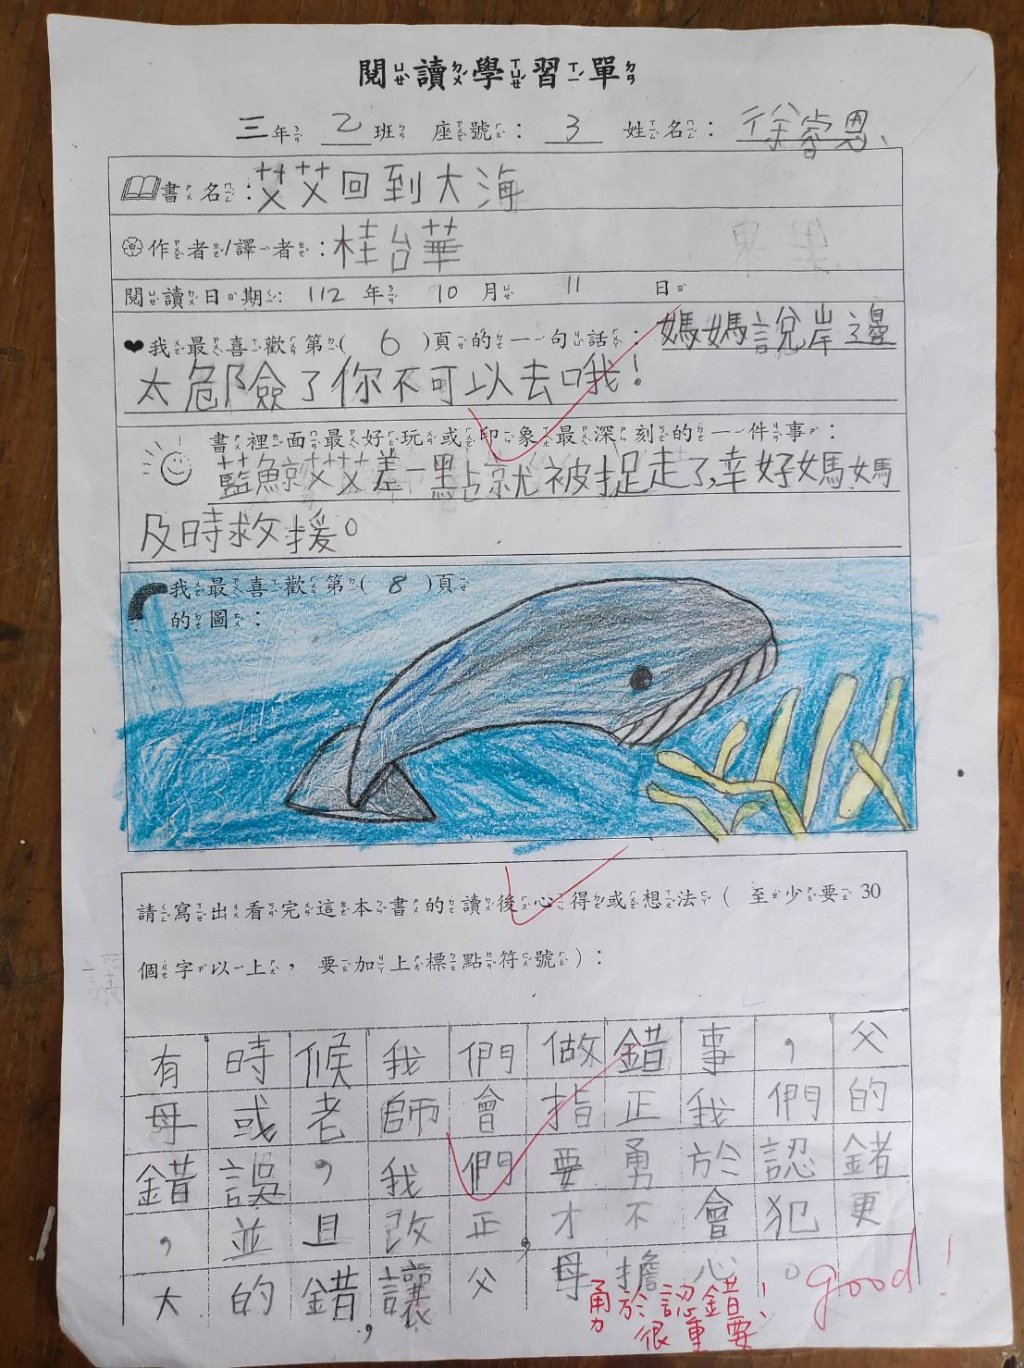 閱讀學習單
三年 2 班 座號: 3 姓名: 徐睿恩
書名:艾艾回到大海
作者/譯者:桂台華
閱讀日期: 112 年 10 月 11 日
我最喜歡第( 6 )頁的一句話: 媽媽說岸邊
太危險了你不可以去哦!
書裡面最好玩或印象最深刻的一件事:
藍鯨艾艾差一點就被捉走了,幸好媽媽
及時救援。
我最喜歡第( 8 )頁
的圖:
請寫出看完這本書的讀後心得或想法( 至少要 30
個字以上, 要加上標點符號):
有時候我們做錯事,父
母或老師會指正我們的
錯誤,我們要勇於認錯
,並且改正,才不會犯更
大的錯,讓父母擔心。
good!
勇於認錯
很重要!